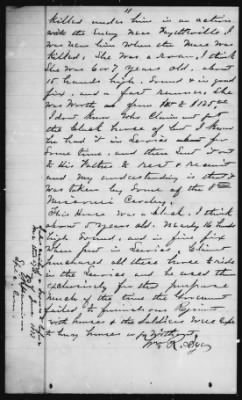 11
killed under him in an action
with the Enemy Near Fayetteville. I
was Near him When the Mare was
killed, She was a roan, I think
She was 6 or 7 years old. about
15 hands high. Sound & in good
fix. and a fast runner. She
was Worth as from to $125.00
I don't know Who Claimant got
the black horse of but I know
he had it in Service about for
some time. and then Sent it
to His Father to rest & recruit
and My understanding is that it
was taken by Some of the 8th
Missouri Cavalry.
This Horse was a black. I think
about 5 years old. Nearly 16 hands
high Sound, and in fine fix
When put in Service. Claimt
purchased all these horses to ride
in the Service and he used them
exclusively for this purpose
Much of the time the Government
failed to furnish our Regiment
with horses & the Soldiers Were
to buy horses or go Without
Wm R.